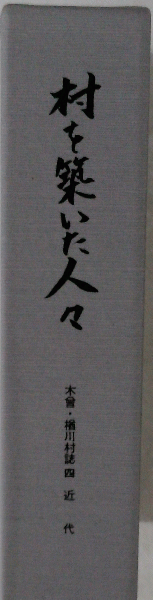 村を築いた人々
木曾・楢川村誌四 近代